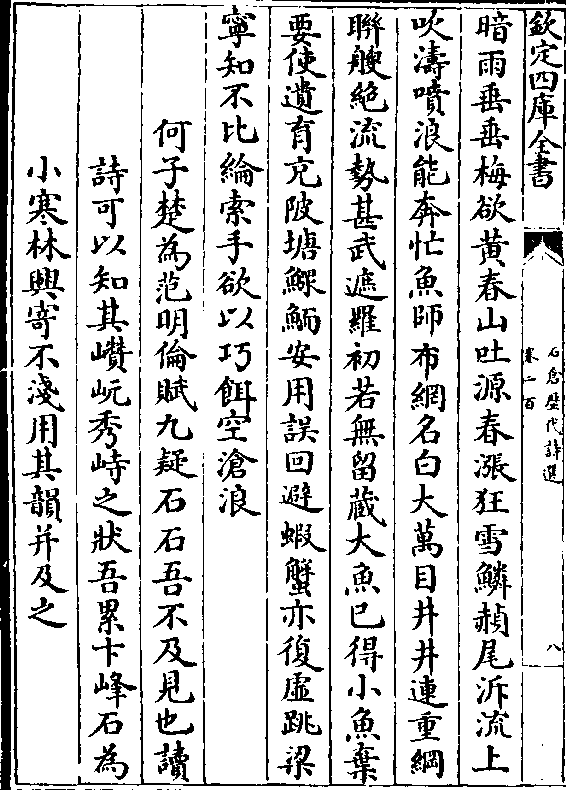 欽定四庫全書
石倉歷代詩選
卷二百
八
暗雨垂垂梅欲黄春山吐源春漲狂雪鱗赬尾泝流上
吹濤噴浪能奔忙魚師布網名白大萬目井井連重綱
聯艘絶流勢甚武遮羅初若無留蔵大魚已得小魚棄
要使遺育充陂塘鰥鯫安用誤回避蝦蟹亦復虛跳梁
寧知不比綸索手欲以巧餌空滄浪
何子楚為范明倫賦九疑石石吾不及見也讀
詩可以知其巑岏秀峙之狀吾累卞峰石為
小寒林興寄不淺用其韻并及之